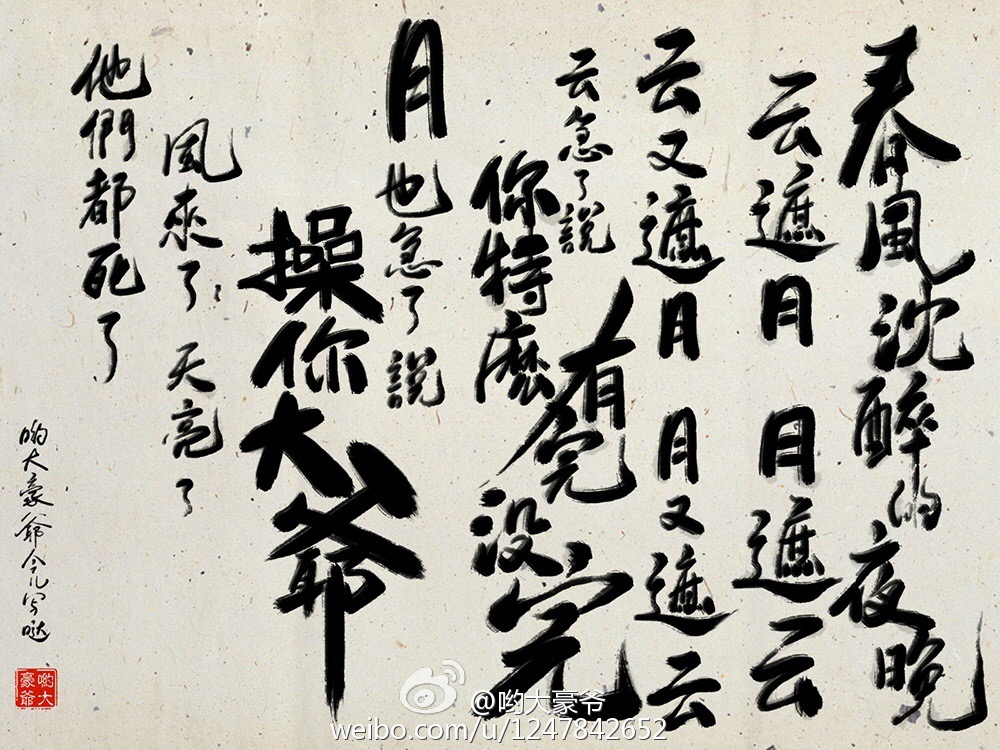 春風沈醉的夜晚
云遮月 月遮云
云又遮月 月又遮云
云急了說
你特麼有完没完
月也急了說
操你大爷
風來了 天亮了
他們都死了
哟大豪爷今儿写哒
哟大豪爷
@哟大豪爷
weibo.com/u/1247842652